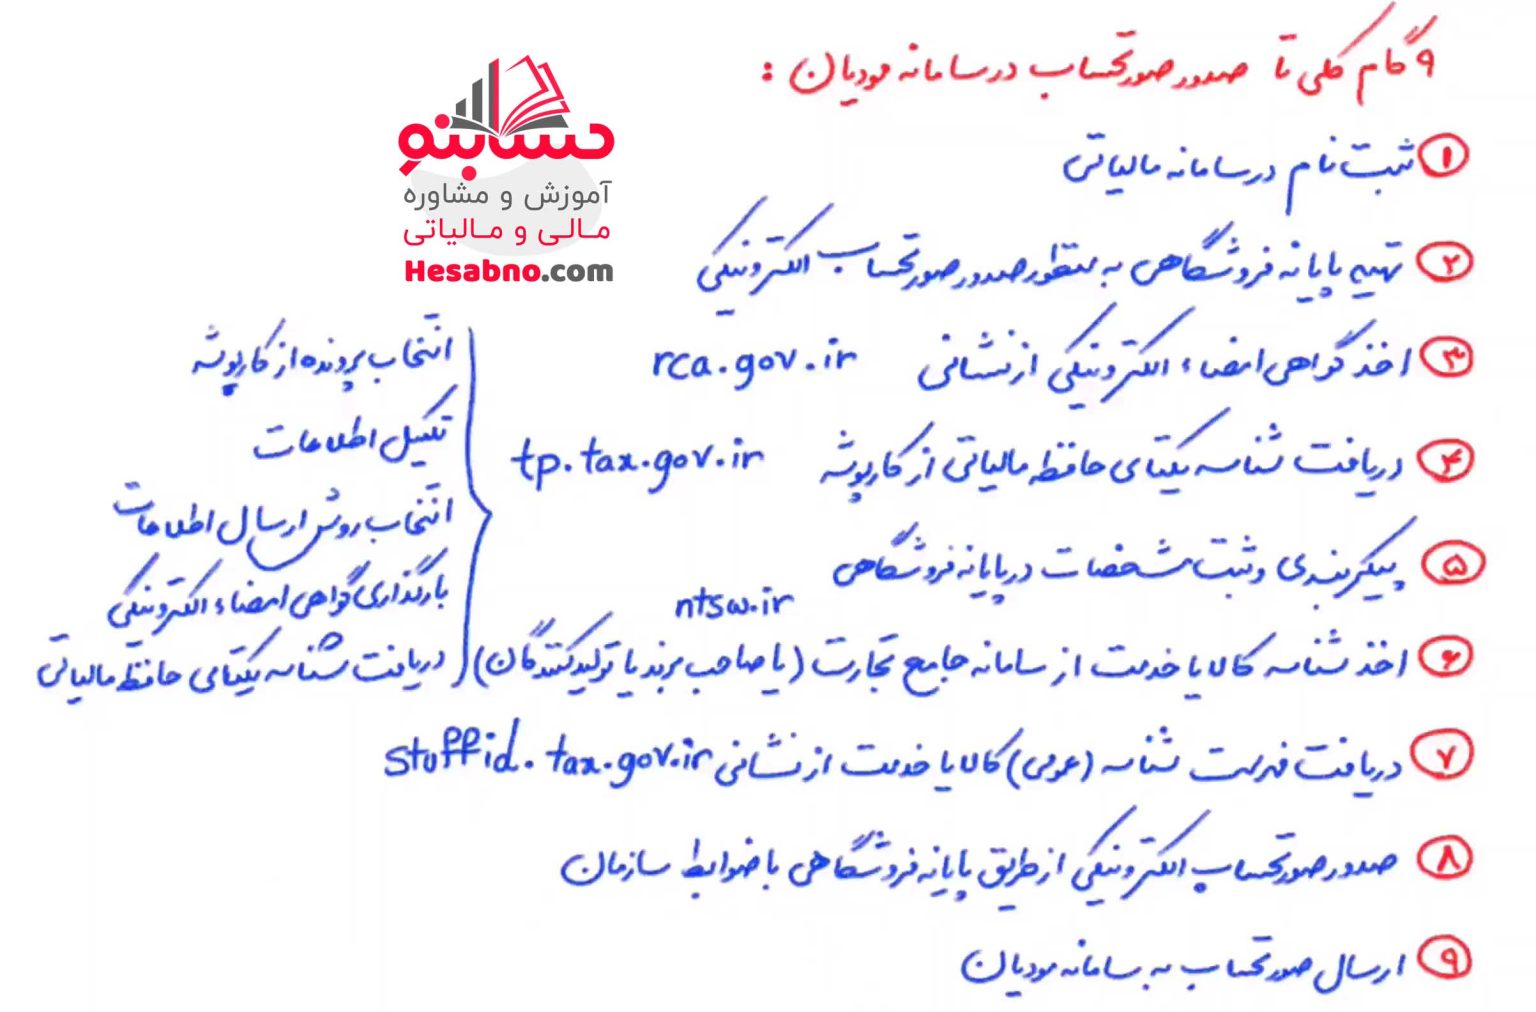 ۹ گام کلی تا صدور صورتحساب در سامانه مودیان :
حسابنو
آموزش و مشاوره
مـالـی و مـالیاتی
Hesabno.com
۱ ثبت نام در سامانه مالیاتی
۲ تهیه پایانه فروشگاهی به منظور صدور صورتحساب الکترونیکی
۳ اخذ گواهی امضاء الکترونیکی از نشانی rca.gov.ir
۴ دریافت شناسه یکتای حافظه مالیاتی از کارپوشه tp.tax.gov.ir
انتخاب پرونده از کارپوشه
تکمیل اطلاعات
انتخاب روش ارسال اطلاعات
بارگذاری گواهی امضاء الکترونیکی
دریافت شناسه یکتای حافظه مالیاتی
۵ پیکربندی و ثبت مشخصات در پایانه فروشگاهی
ntsw.ir
۶ اخذ شناسه کالا یا خدمت از سامانه جامع تجارت (یا صاحب برند یا تولیدکنندگان)
۷ دریافت فهرست شناسه (عمومی) کالا یا خدمت از نشانی stuffid.tax.gov.ir
۸ صدور صورتحساب الکترونیکی از طریق پایانه فروشگاهی با ضوابط سازمان
۹ ارسال صورتحساب به سامانه مودیان